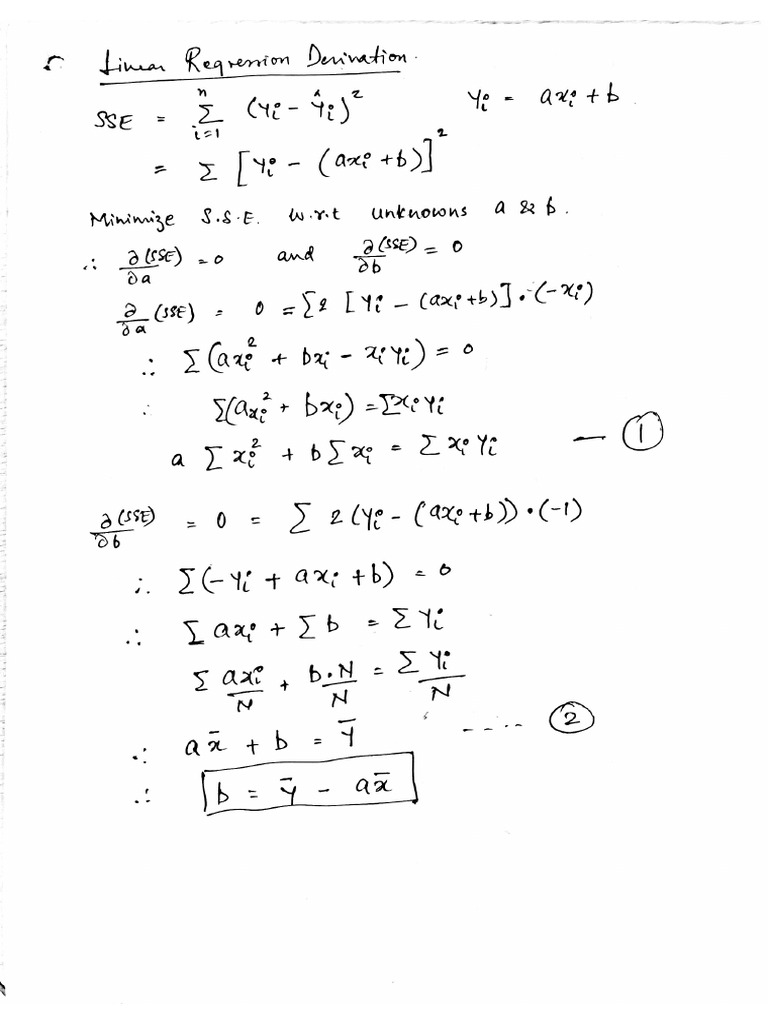 Linear Regression Derivation.
SSE = Σ_{i=1}^{n} (Yi - Ŷi)²    Yi = axi + b
= Σ [Yi - (axi + b)]²
Minimize S.S.E. w.r.t unknowns a & b.
∴ ∂(SSE)/∂a = 0 and ∂(SSE)/∂b = 0
∂/∂a (SSE) = 0 = Σ2 [Yi - (axi + b)] · (-xi)
∴ Σ(axi² + bxi - xiYi) = 0
∴ Σ(axi² + bxi) = ΣxiYi
a Σxi² + bΣxi = ΣxiYi — ①
∂(SSE)/∂b = 0 = Σ 2(Yi - (axi + b)) · (-1)
∴ Σ(-Yi + axi + b) = 0
∴ Σaxi + Σb = ΣYi
Σ axi/N + b·N/N = Σ Yi/N
∴ ax̄ + b = Ȳ ---- ②
∴ b = Ȳ - ax̄